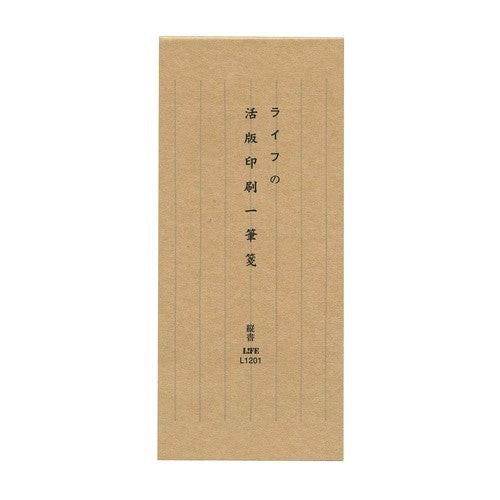 ライフの
活版印刷一筆箋
縦書
LIFE
L1201